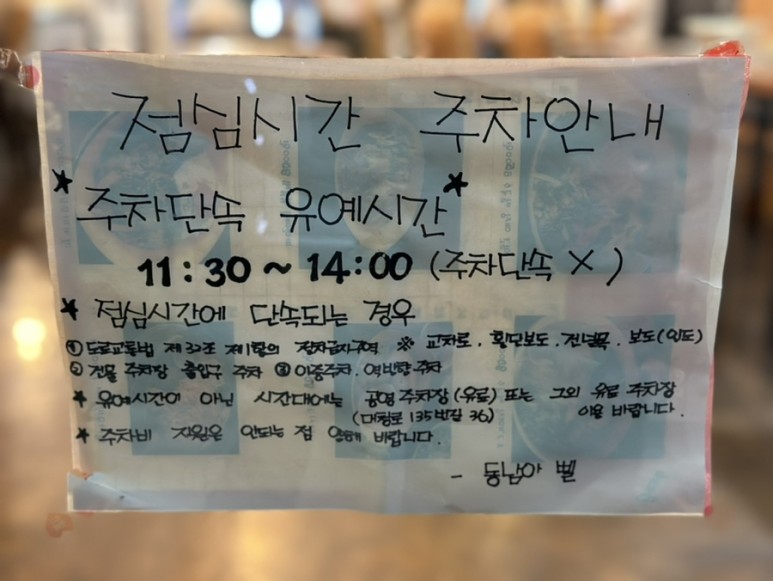 점심시간 주차안내
★주차단속 유예시간★
11:30 ~ 14:00 (주차단속 X)
★ 점심시간에 단속되는 경우
① 도로교통법 제32조 제1항의 정차금지구역 ※ 교차로. 횡단보도. 건널목. 보도(인도)
② 건물 주차장 출입구 주차 ③ 이중주차. 역방향 주차
★ 유예시간이 아닌 시간대에는 공영주차장 (유료) 또는 그외 유료 주차장
(대청로 135번길 36) 이용 바랍니다.
★ 주차비 지원은 안되는 점 양해 바랍니다.
- 동남아 벨